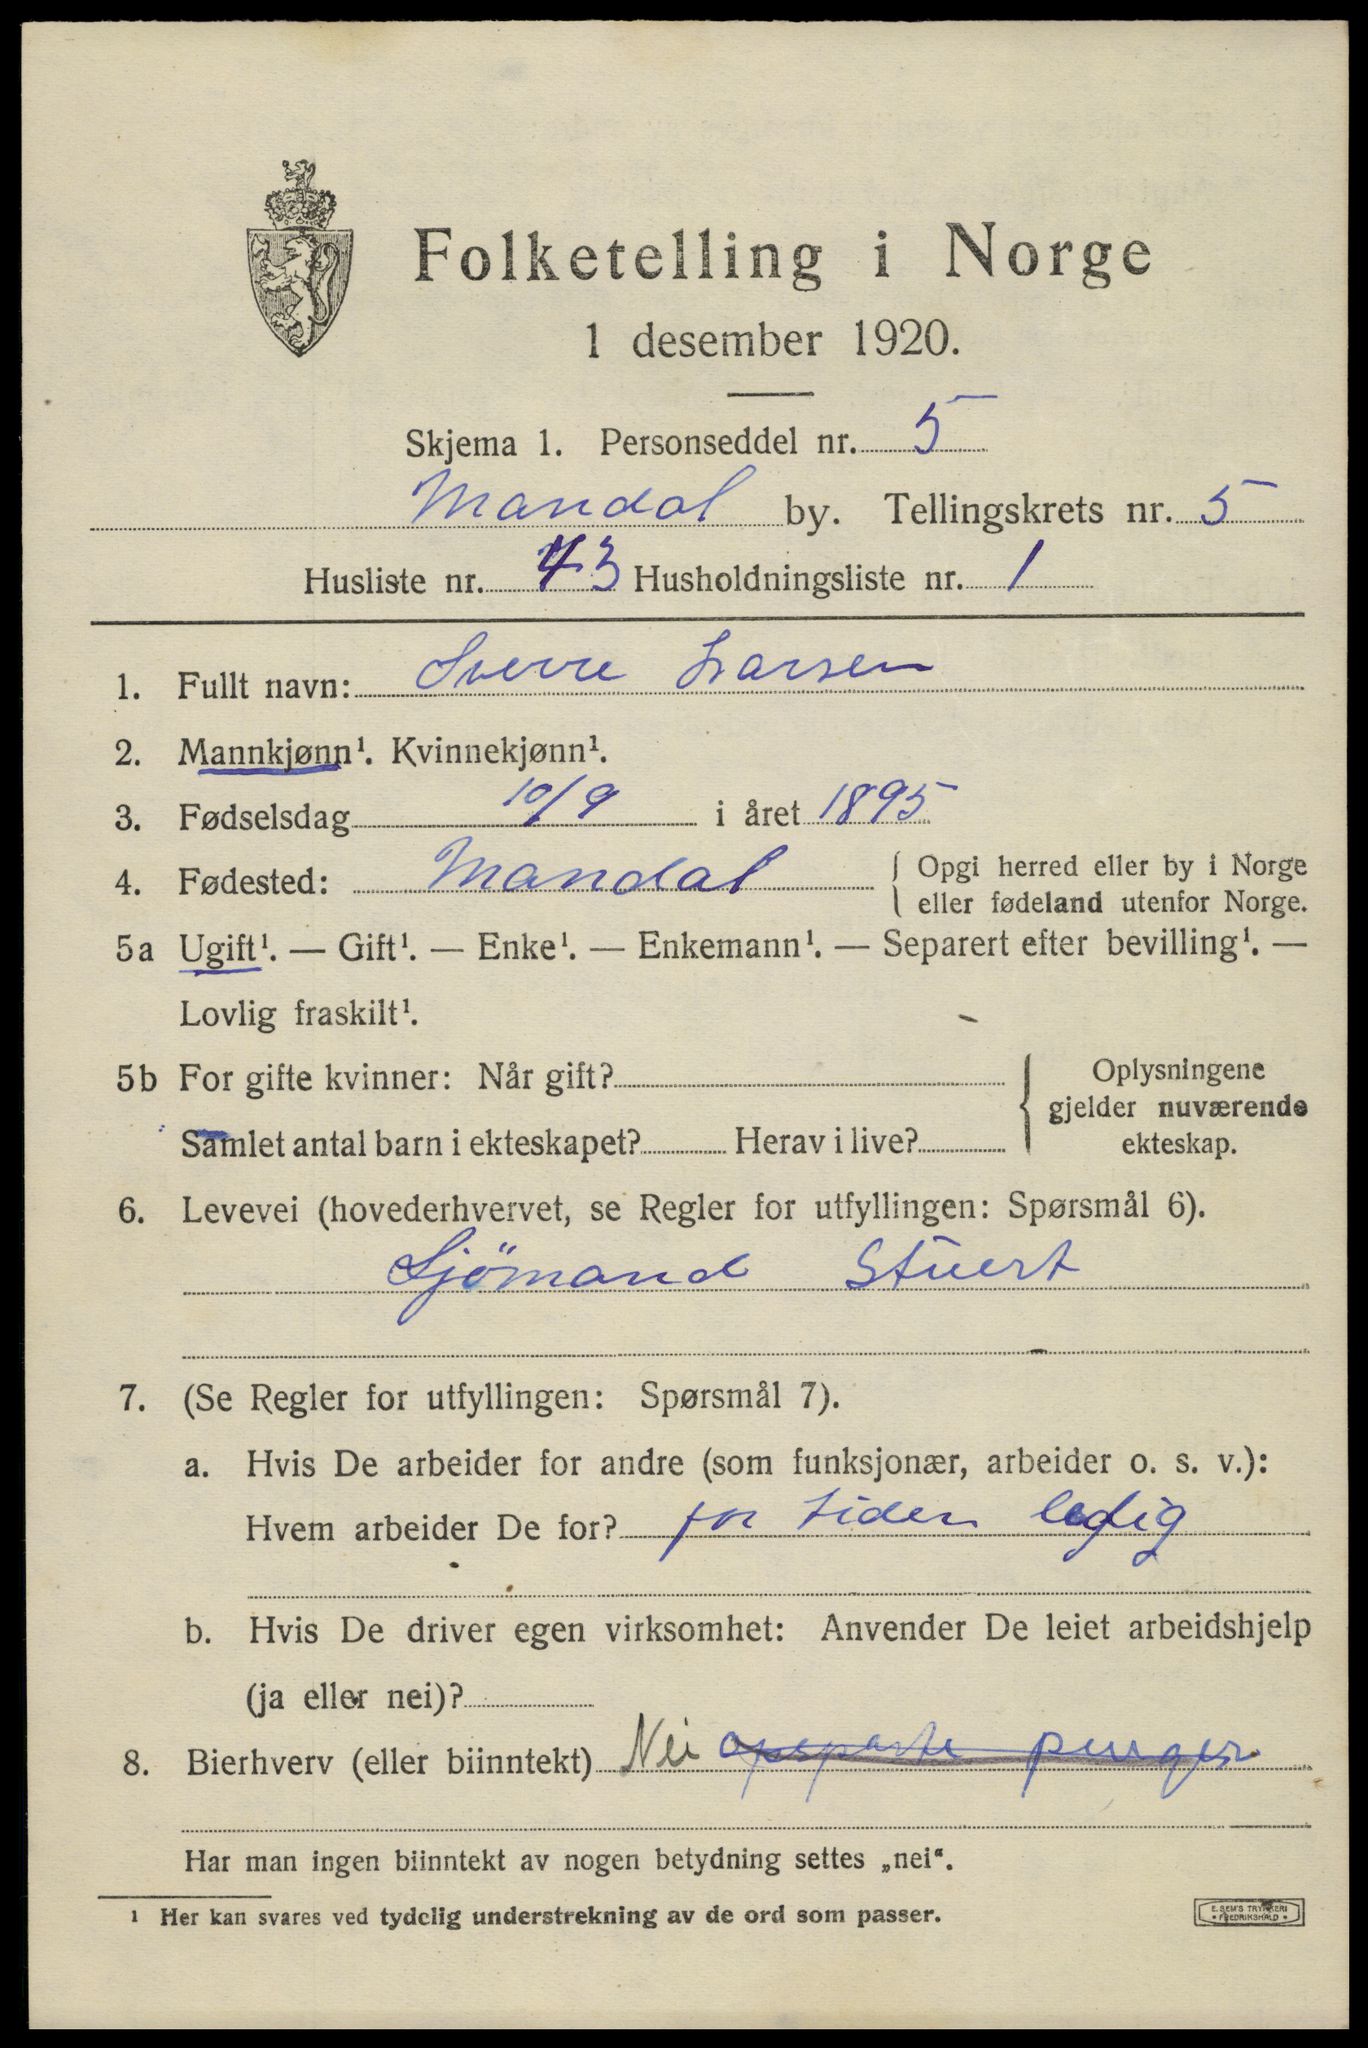 Folketelling i Norge
1 desember 1920.
Skjema 1. Personseddel nr. 5
Mandal by. Tellingskrets nr. 5
Husliste nr. 43 Husholdningsliste nr. 1
1. Fullt navn: Sverre Larsen
2. Mannkjønn¹. Kvinnekjønn¹.
3. Fødselsdag 10/9 i året 1895
4. Fødested: Mandal { Opgi herred eller by i Norge
eller fødeland utenfor Norge.
5a Ugift¹. — Gift¹. — Enke¹. — Enkemann¹. — Separert efter bevilling¹. —
Lovlig fraskilt¹.
5b For gifte kvinner: Når gift? { Oplysningene
gjelder nuværende
Samlet antal barn i ekteskapet? Herav i live? ekteskap.
6. Levevei (hovederhvervet, se Regler for utfyllingen: Spørsmål 6).
Sjömand Stuert
7. (Se Regler for utfyllingen: Spørsmål 7).
a. Hvis De arbeider for andre (som funksjonær, arbeider o. s. v.):
Hvem arbeider De for? for tiden ledig
b. Hvis De driver egen virksomhet: Anvender De leiet arbeidshjelp
(ja eller nei)?
8. Bierhverv (eller biinntekt) Nei opsparte penger
Har man ingen biinntekt av nogen betydning settes „nei“.
¹ Her kan svares ved tydelig understrekning av de ord som passer.
E. SEM'S TRYKKERI
• FREDRIKSHALD •